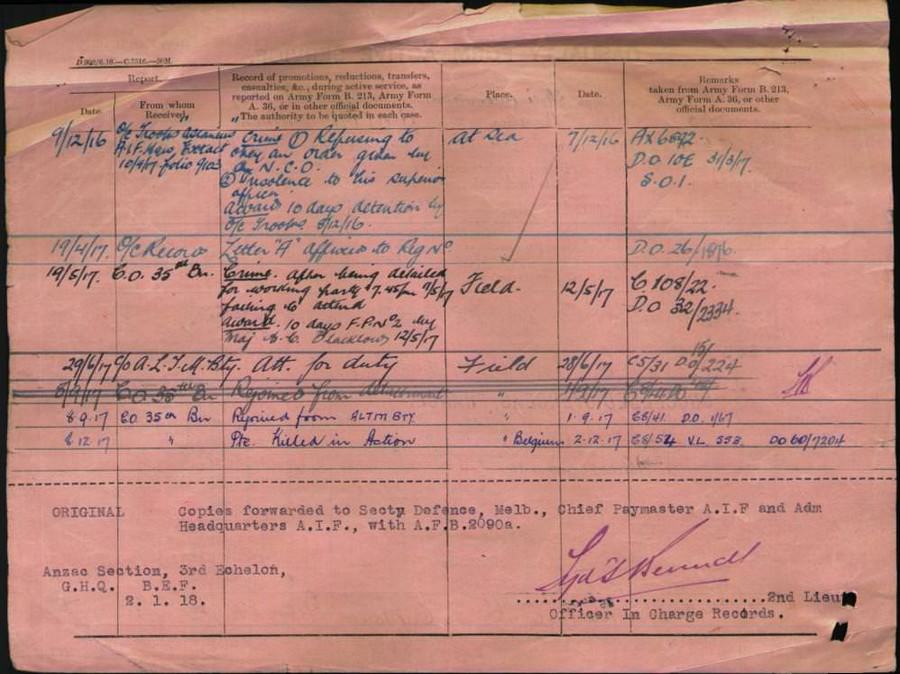 Report.
Record of promotions, reductions, transfers,
casualties, &c., during active service, as
reported on Army Form B. 213, Army Form
A. 36, or in other official documents.
The authority to be quoted in each case.
Place.
Date.
Remarks
taken from Army Form B. 213,
Army Form A. 36, or other
official documents.
Date.
From whom
Received.
9/12/16 O/C Troops Ascanius Crime ① Refusing to at Sea 7/12/16
A.I.F. Hqrs, Extract obey an order given by D.O 10E 31/3/17
10/4/17 folio an N.C.O. S.O.1.
② Insolence to his superior
officer
Award 10 days detention by
O/C Troops 8/12/16.
19/4/17. O/C Records Letter "A" affixed to Reg No D.O. 26/
19/5/17. C.O. 35th Bn. Crime. after being detailed Field. 12/5/17 C 108/22.
for working party 7.45pm D.O 32/2334.
failing to attend
Award. 10 days F.P. No 2 by
Maj 12/5/17
29/6/17 A.L.T.M. Bty. Att. for duty Field 28/6/17 C5/31 D.O 224
C.O. 35th Bn Rejoined from detachment "
8.9.17 C.O. 35th Bn Rejoined from ALTM BTY " 1.9.17 C8/41 D.O. 1/67
8.12.17 " Pte. Killed in Action " Belgium 2.12.17 C8/54 V.L. 553 DO 60/7204
ORIGINAL Copies forwarded to Secty Defence, Melb., Chief Paymaster A.I.F and Adm
Headquarters A.I.F., with A.F.B.2090a.
Anzac Section, 3rd Echelon,
G.H.Q. B.E.F.
2. 1. 18.
2nd Lieut
Officer In Charge Records.